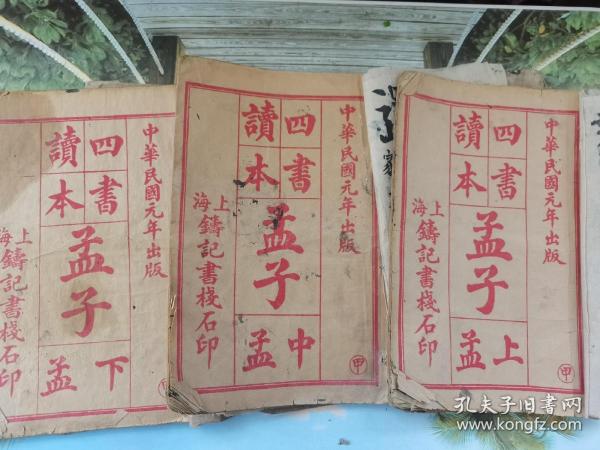 中華民國元年出版
四書
讀本
孟子
上孟
上海鑄記書棧石印
甲
中華民國元年出版
四書
讀本
孟子
中孟
上海鑄記書棧石印
甲
中華民國元年出版
四書
讀本
孟子
下孟
上海鑄記書棧石印
孔夫子旧书网
www.kongfz.com